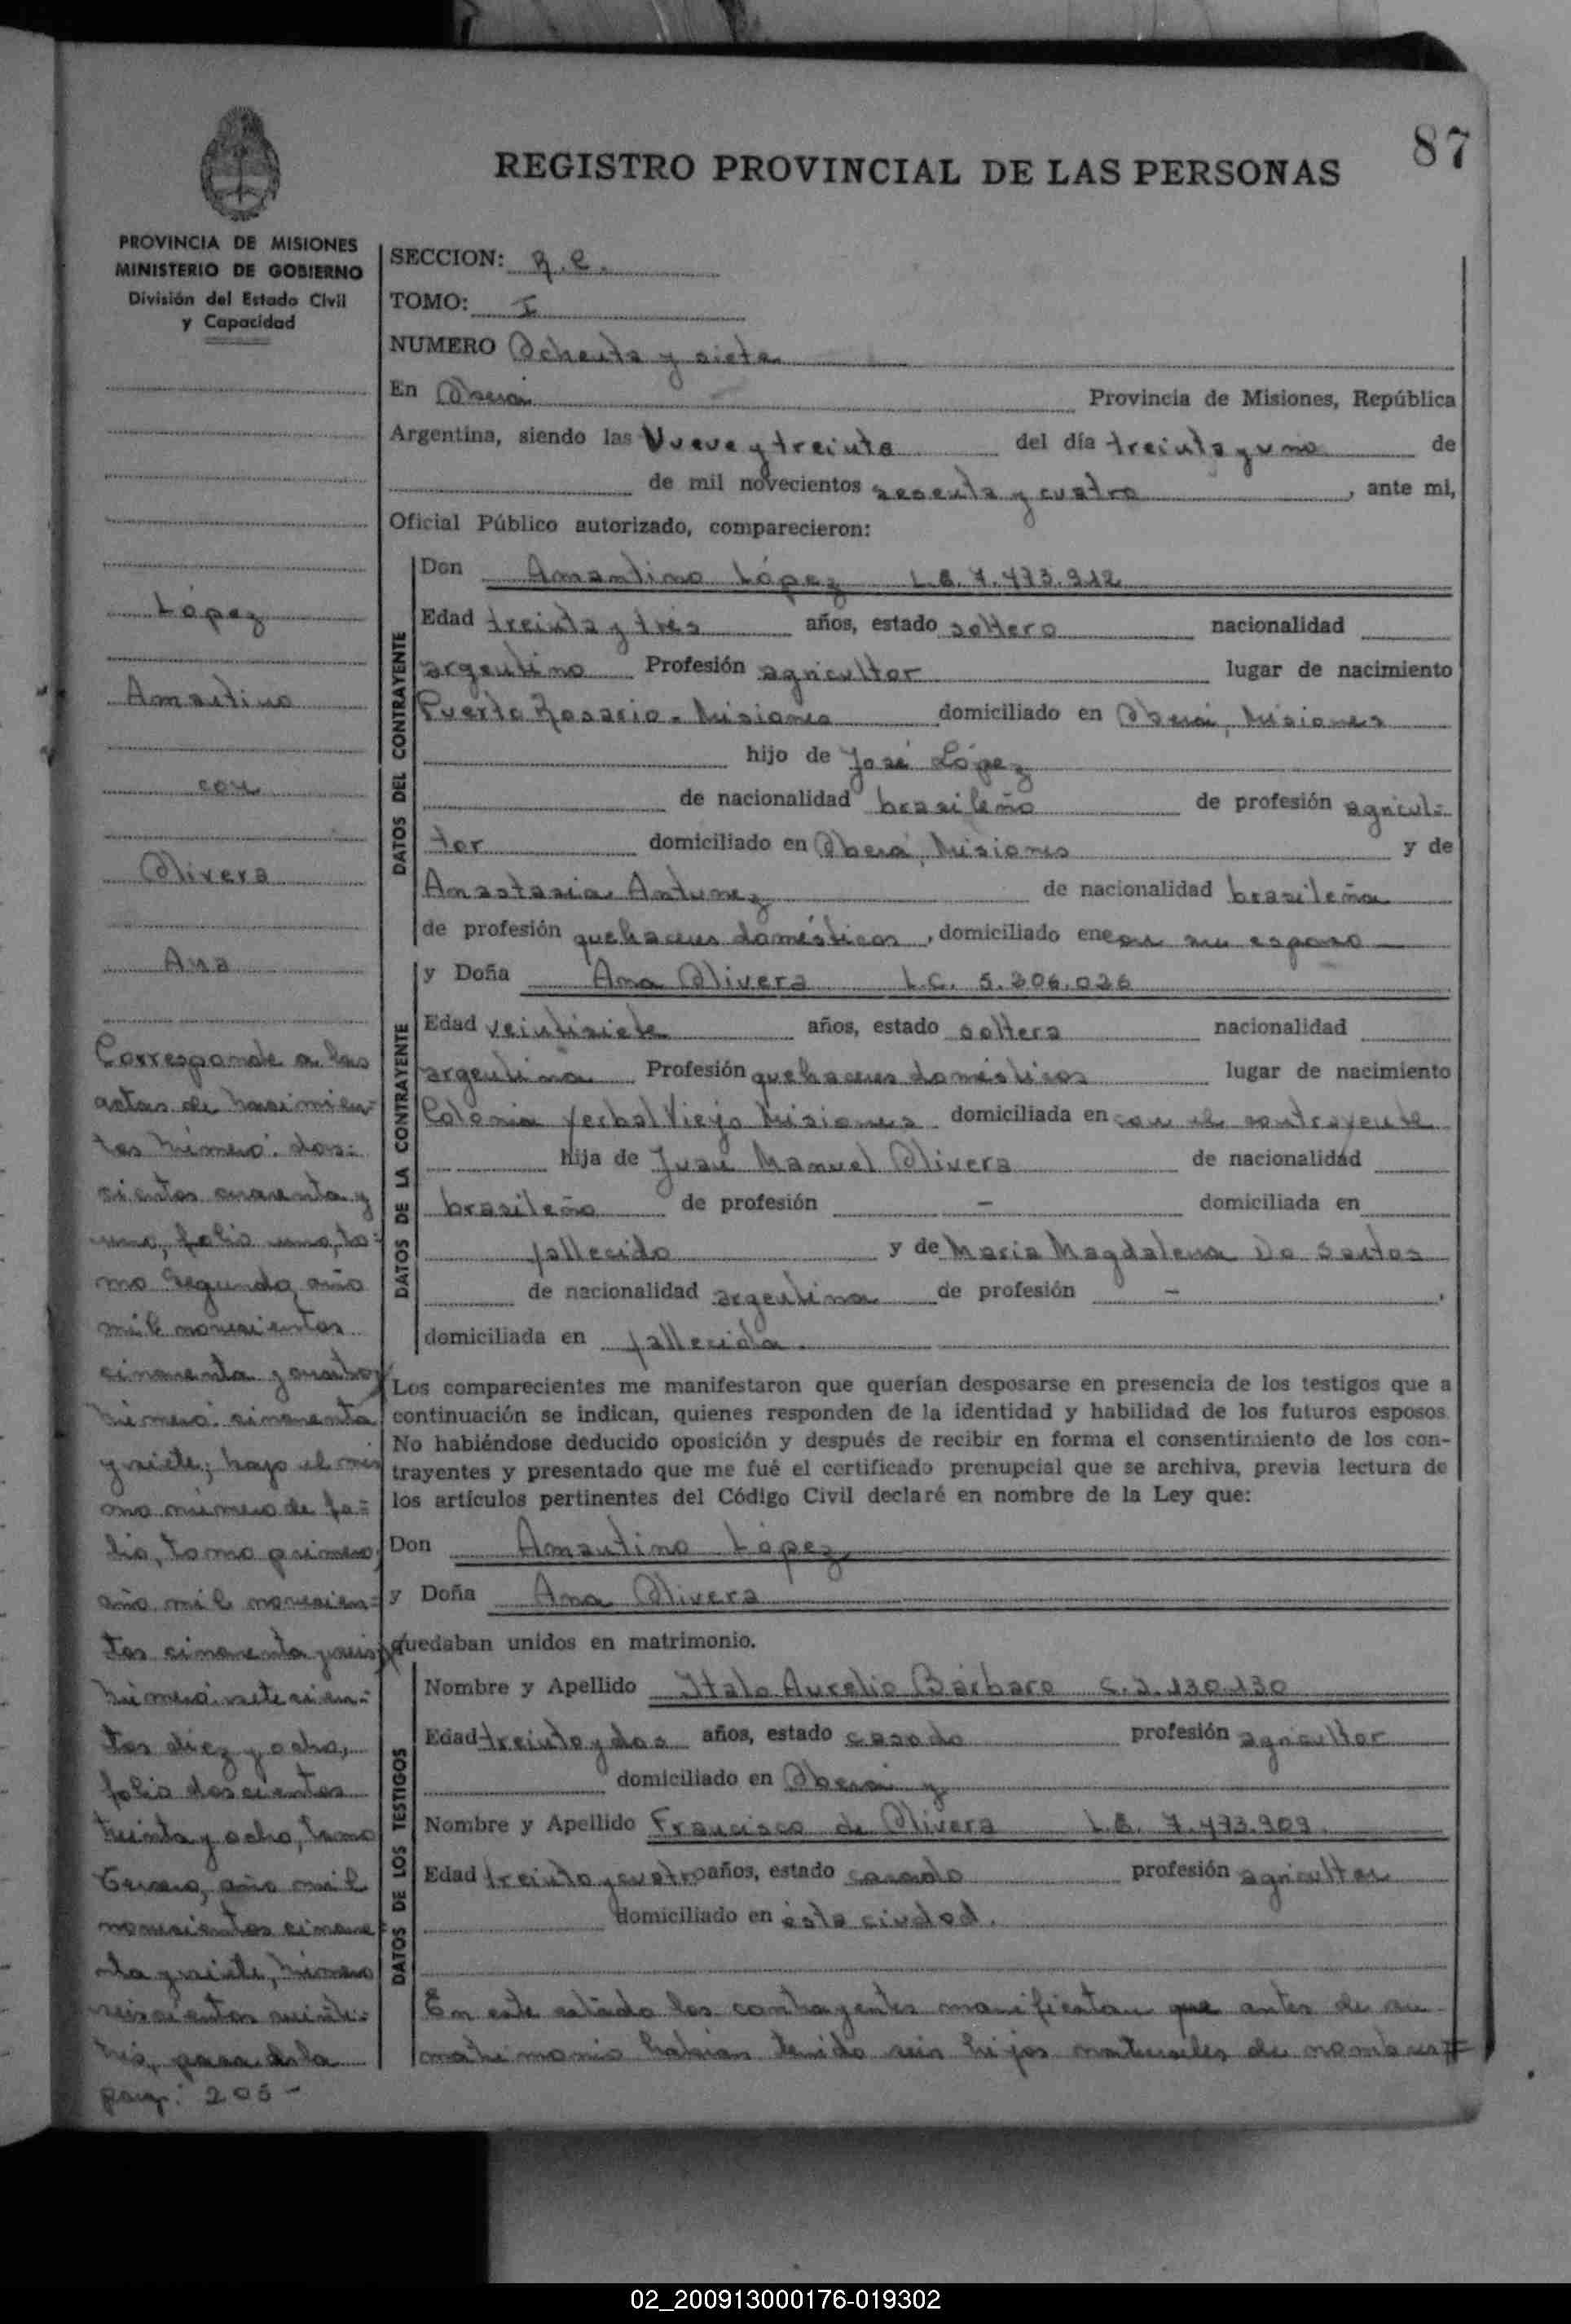 87
REGISTRO PROVINCIAL DE LAS PERSONAS
PROVINCIA DE MISIONES
MINISTERIO DE GOBIERNO
División del Estado Civil
y Capacidad
López
Amantino
con
Olivera
Ana
Corresponde a las
actas de nacimien-
tos número: dos-
cientos cuarenta y
uno, folio uno, to-
mo segundo, año
mil novecientos
cincuenta y cuatro,
número: cincuenta
y siete, bajo el mis
mo número de fo-
lio, tomo primero,
año mil novecien-
tos cincuenta y seis,
número: setecien-
tos diez y ocho,
folio doscientos
treinta y ocho, tomo
tercero, año mil
novecientos cincue
nta y siete, número
seiscientos
pasa a la
pag: 205-
SECCION: R.C.
TOMO: I
NUMERO Ochenta y siete
En Oberá Provincia de Misiones, República
Argentina, siendo las Nueve y treinta del día treinta y uno de
de mil novecientos sesenta y cuatro, ante mi,
Oficial Público autorizado, comparecieron:
DATOS DEL CONTRAYENTE
Don Amantino López L.E. 7.473.912
Edad treinta y tres años, estado soltero nacionalidad
argentino Profesión agricultor lugar de nacimiento
Puerto Rosario - Misiones domiciliado en Oberá, Misiones
hijo de José López
de nacionalidad brasileño de profesión agricul-
tor domiciliado en Oberá, Misiones y de
Anastasia Antunez de nacionalidad brasileña
de profesión quehaceres domésticos, domiciliado en con su esposo
DATOS DE LA CONTRAYENTE
y Doña Ana Olivera L.C. 5.206.026
Edad veintisiete años, estado soltera nacionalidad
argentina Profesión quehaceres domésticos lugar de nacimiento
Colonia Yerbal Viejo Misiones domiciliada en con el contrayente
hija de Juan Manuel Olivera de nacionalidad
brasileño de profesión - domiciliada en
fallecido y de Maria Magdalena Do Santos
de nacionalidad argentina de profesión -,
domiciliada en fallecida
Los comparecientes me manifestaron que querían desposarse en presencia de los testigos que a
continuación se indican, quienes responden de la identidad y habilidad de los futuros esposos.
No habiéndose deducido oposición y después de recibir en forma el consentimiento de los con-
trayentes y presentado que me fué el certificado prenupcial que se archiva, previa lectura de
los artículos pertinentes del Código Civil declaré en nombre de la Ley que:
Don Amantino López
y Doña Ana Olivera
quedaban unidos en matrimonio.
DATOS DE LOS TESTIGOS
Nombre y Apellido Italo Aurelio Bárbaro C.I. 130.130
Edad treinta y dos años, estado casado profesión agricultor
domiciliado en Oberá y
Nombre y Apellido Francisco de Olivera L.E. 7.473.909.
Edad treinta y cuatro años, estado casado profesión agricultor
domiciliado en ésta ciudad.
En este estado los contrayentes manifiestan que antes de su
matrimonio habian tenido seis hijos naturales de nombres
02_200913000176-019302